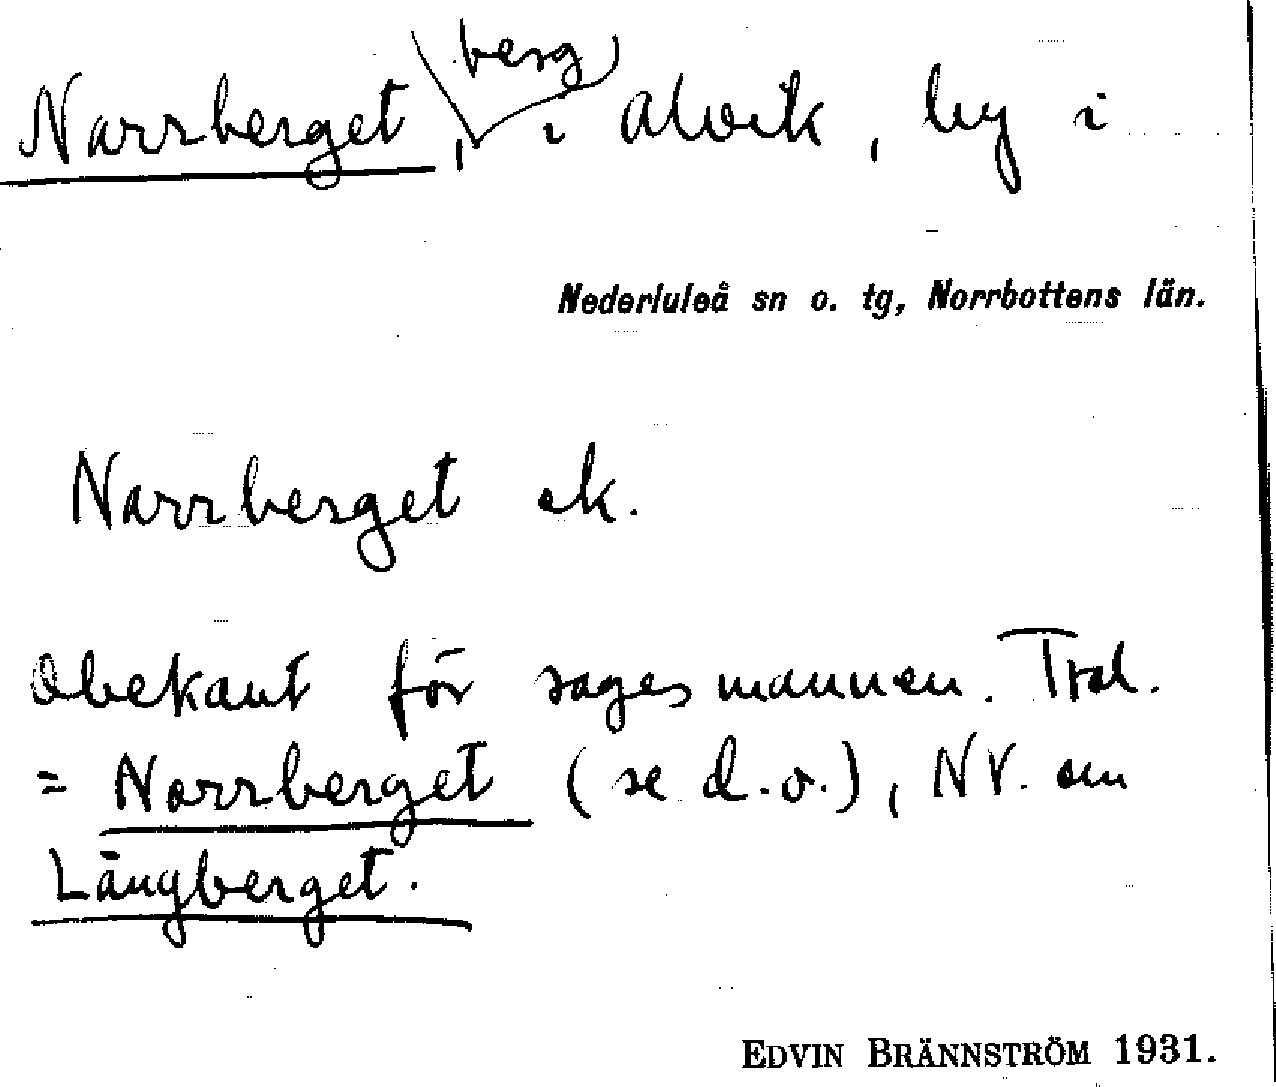 Narrberget, berg i Alvik, by i
Nederluleå sn o. tg, Norrbottens län.
Narrberget ek.
Obekant för sagesmannen. Trol.
= Norrberget (se d.o.), NV. om
Långberget.
EDVIN BRÄNNSTRÖM 1931.